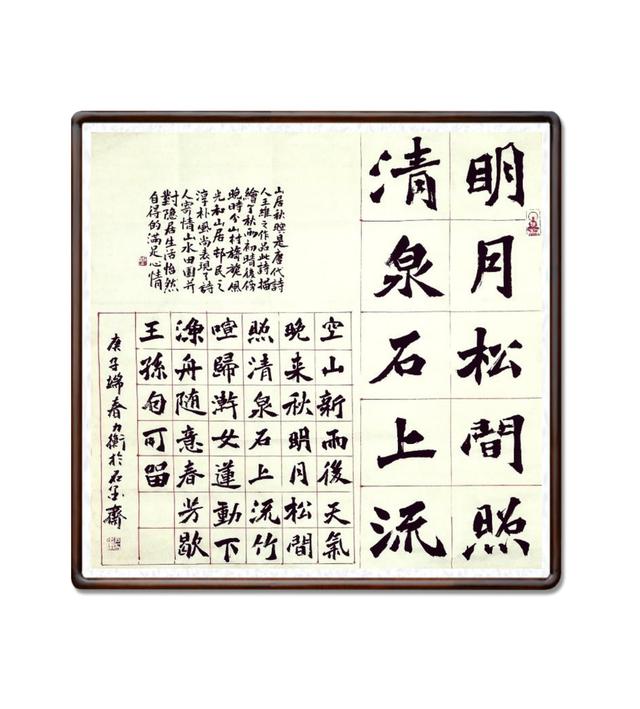 明月松間照
清泉石上流
山居秋暝是唐代詩
人王維之作品此詩描
繪了秋雨初晴後傍
晚時分山村旖旎風
光和山居村民之
淳朴風尚表現了詩
人寄情山水田園并
對隐居生活怡然
自得的滿足心情
空山新雨後天氣
晚来秋明月松間
照清泉石上流竹
喧歸澣女蓮動下
漁舟随意春芳歇
王孫自可留
庚子端春力衡於石墨齋